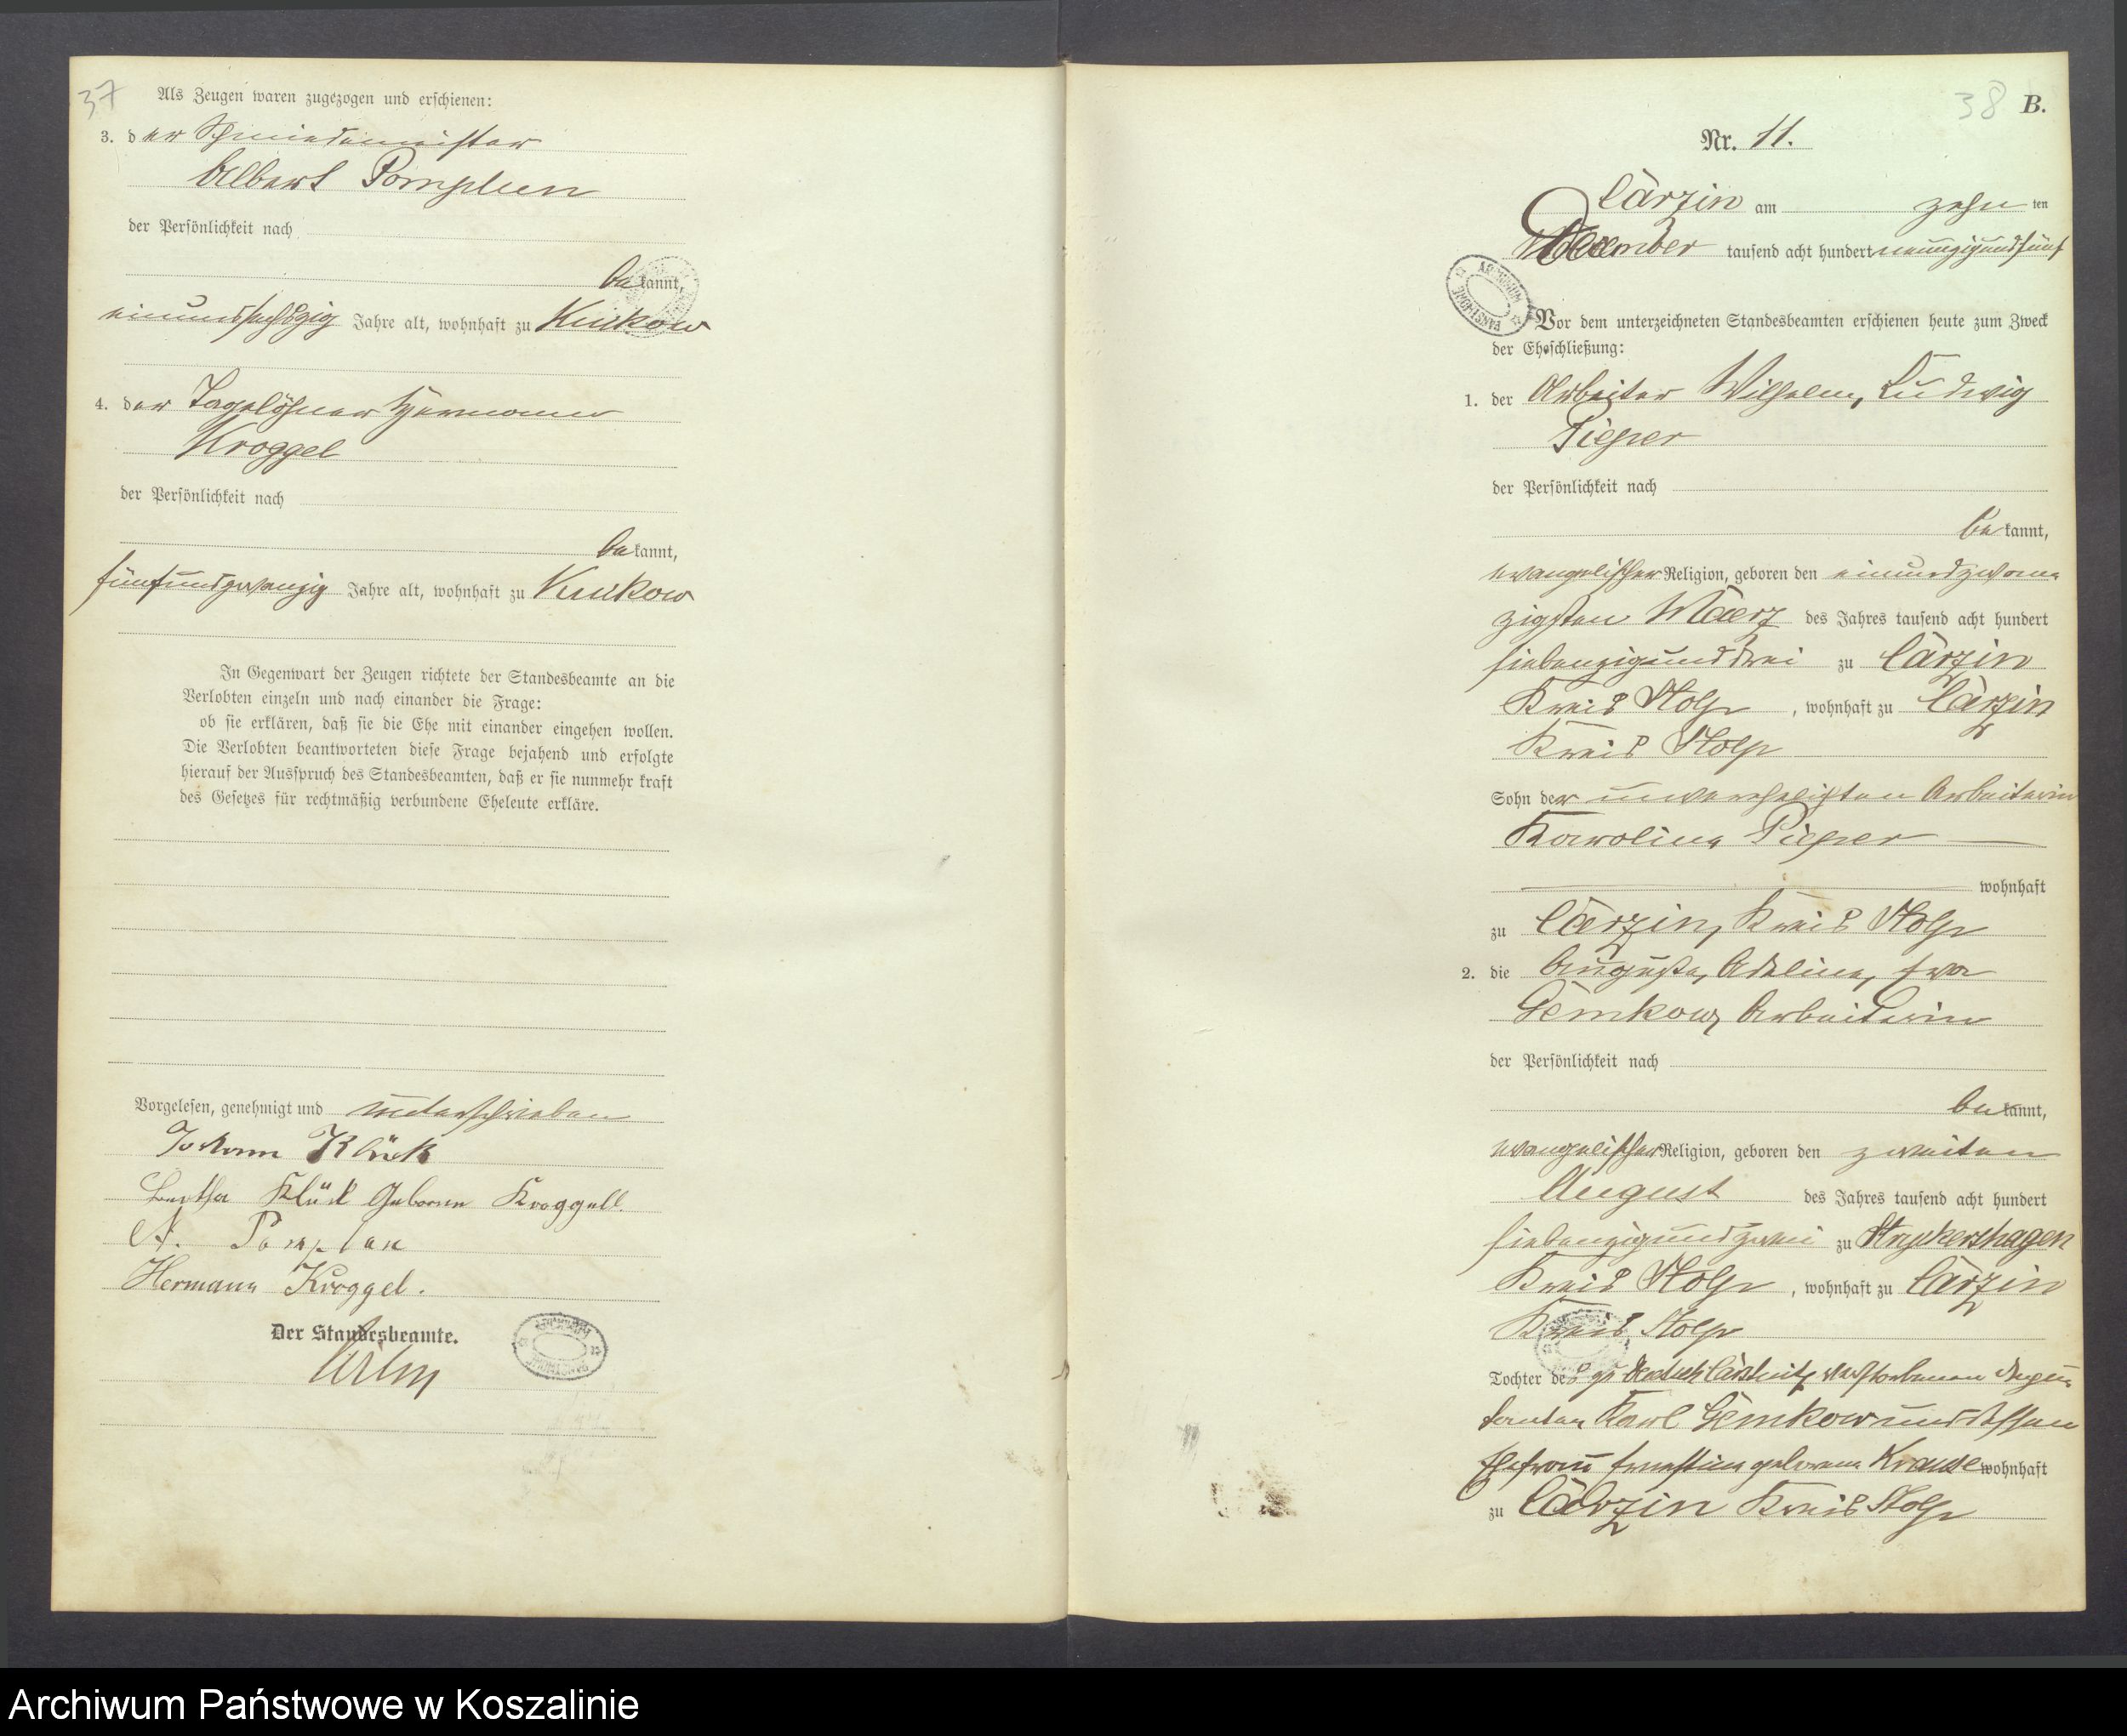 37
Als Zeugen waren zugezogen und erschienen:
3. der Schmiedemeister
Albert Pomplun
der Persönlichkeit nach
bekannt,
einundsechszig Jahre alt, wohnhaft zu Kukow
4. der Tagelöhner Hermann
Kroggel
der Persönlichkeit nach
bekannt,
fünfundzwanzig Jahre alt, wohnhaft zu Kukow
In Gegenwart der Zeugen richtete der Standesbeamte an die
Verlobten einzeln und nach einander die Frage:
ob sie erklären, daß sie die Ehe mit einander eingehen wollen.
Die Verlobten beantworteten diese Frage bejahend und erfolgte
hierauf der Ausspruch des Standesbeamten, daß er sie nunmehr kraft
des Gesetzes für rechtmäßig verbundene Eheleute erkläre.
Vorgelesen, genehmigt und unterschrieben
Johann Klück
Bertha Klück Geborene Kroggell.
A. Pomplun
Hermann Kroggel.
Der Standesbeamte.
38 B.
Nr. 11.
Carzin am zehnten
December tausend acht hundert neunzigundfünf
Vor dem unterzeichneten Standesbeamten erschienen heute zum Zweck
der Eheschließung:
1. der Arbeiter Wilhelm, Ludwig
Pieper
der Persönlichkeit nach
bekannt,
evangelischer Religion, geboren den einundzwan-
zigsten Maerz des Jahres tausend acht hundert
siebenzigunddrei zu Carzin
Kreis Stolp, wohnhaft zu Carzin
Kreis Stolp
Sohn der unverehelichten Arbeiterin
Karoline Pieper
wohnhaft
zu Carzin, Kreis Stolp
2. die Auguste, Adeline, Eva
Gemkow, Arbeiterin
der Persönlichkeit nach
bekannt,
evangelischer Religion, geboren den zweiten
August des Jahres tausend acht hundert
siebenzigundzwei zu Stryckershagen
Kreis Stolp, wohnhaft zu Carzin
Kreis Stolp
Tochter des zu Deutsch Carstnitz verstorbenen
Karl Gemkow und dessen
Ehefrau Ernestine geborene Krause wohnhaft
zu Carzin Kreis Stolp
Archiwum Państwowe w Koszalinie